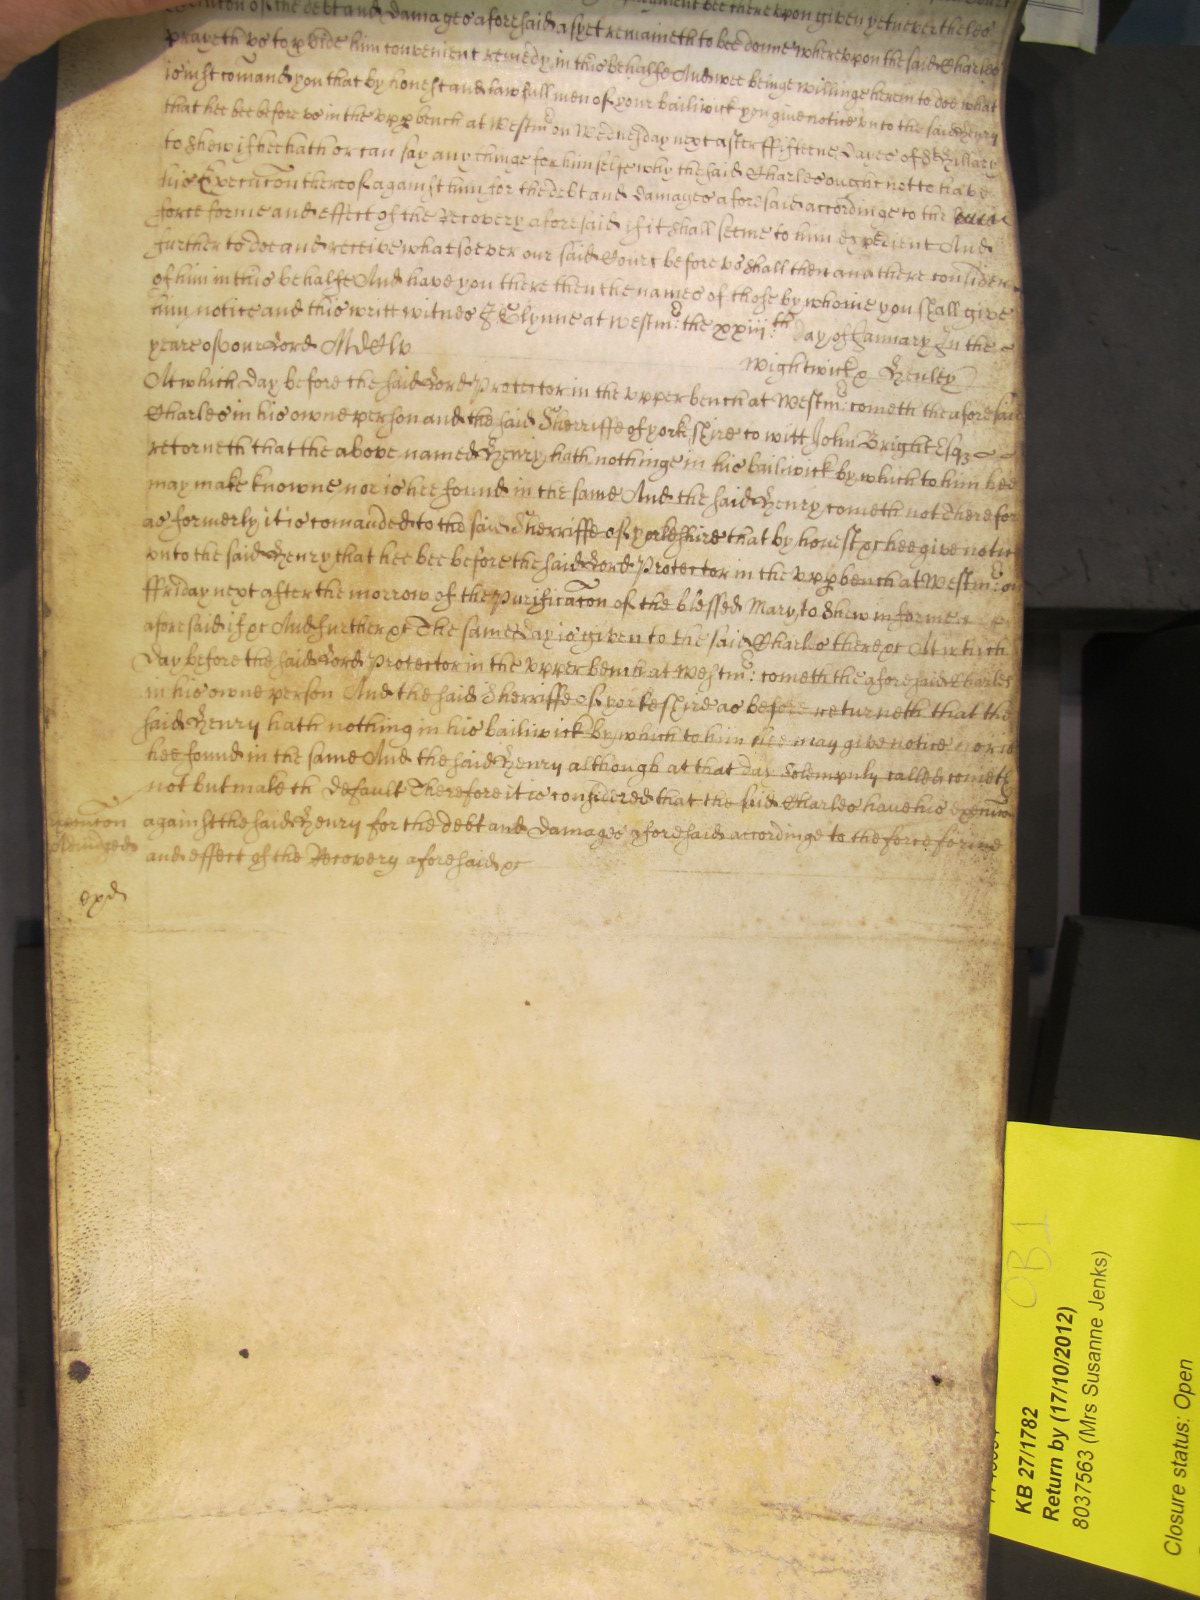 execucon of the debt and damages aforesaid as yet remaineth to bee donne whereupon the said Charles
prayeth us to pvide him convenient remedy in this behalfe And wee beinge willinge herein to doe what
is just comand you that by honest and lawfull men of your bailiwick you give notice unto the said Henry
that hee bee before us in the upp bench at Westmr: on Wednesday next after ffifteene dayes of St Hillary
to shew if hee hath or can say any thinge for himselfe why the said Charles ought not to have
his Execucon thereof against him for the debt and damages aforesaid accordinge to the
force forme and effect of the Recovery aforesaid if it shall seeme to him expedient And
further to doe and receive whatsoever our said Court before us shall then and there consider
of him in this behalfe And have you there then the names of those by whome you shall give
him notice and this writt witnes J Glynne at Westmr: the xxiiith day of January In the
yeare of our Lord MDClv
Wightwick & Henley
At which day before the said Lord Protector in the upper bench at Westmr: cometh the aforesaid
Charles in his owne person and the said Sherriffe of yorkshire to witt John Bright Esq
retorneth that the above named Henry hath nothinge in his bailiwick by which to him hee
may make knowne nor is hee found in the same And the said Henry cometh not Therefore
as formerly it is comanded to the said Sherriffe of yorkeshire that by honest &c hee give notice
unto the said Henry that hee bee before the said Lord Protector in the upp bench at Westmr: on
ffriday next after the morrow of the purificacon of the blessed Mary to shew in forme
aforesaid if &c And further &c The same day is given to the said Charles there &c At which
day before the said Lord Protector in the upper bench at Westmr: cometh the aforesaid Charles
in his owne person And the said Sherriffe of yorkeshire as before returneth that the
said Henry hath nothing in his bailiwick by which to him hee may give notice nor is
hee found in the same And the said Henry although at that day solempnly called cometh
not but maketh default Therefore it is considered that the said Charles have his execucon
against the said Henry for the debt and damages aforesaid accordinge to the force forme
and effect of the Recovery aforesaid &c
execucon
adiudged
exd
OB1
KB 27/1782
Return by (17/10/2012)
8037563 (Mrs Susanne Jenks)
Closure status: Open